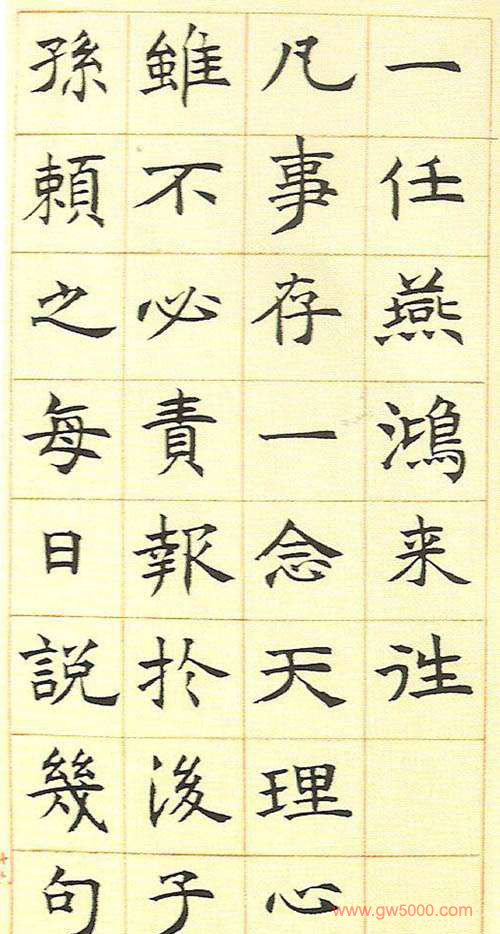 一任燕鴻来往
凡事存一念天理心
雖不必責報於後子
孫頼之每日説幾句
www.gw5000.com